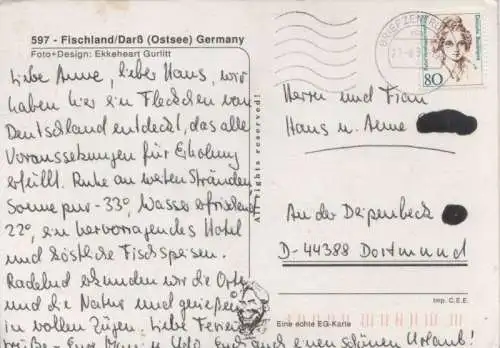 597 - Fischland/Darß (Ostsee) Germany
Foto+Design: Ekkeheart Gurlitt
Liebe Anne, lieber Hans, wir
haben hier ein Fleckchen von
Deutschland entdeckt, das alle
Voraussetzungen für Erholung
erfüllt. Ruhe an weiten Stränden,
Sonne pur - 33°, Wasser erfrischend
22°, ein hervorragendes Hotel
und köstliche Fischspeisen.
Radelnd erkunden wir die Orte
und die Natur und genießen
in vollen Zügen. Liebe Ferien
grüße - Eure u. Udo. Euch auch einen schönen Urlaub!
All rights reserved!
BRIEFZENTRUM
Deutsche Bundespost
80
Herrn und Frau
Hans u. Anne
An der Deipenbeck
D-44388 Dortmund
Imp. C.E.E.
Eine echte EG-Karte